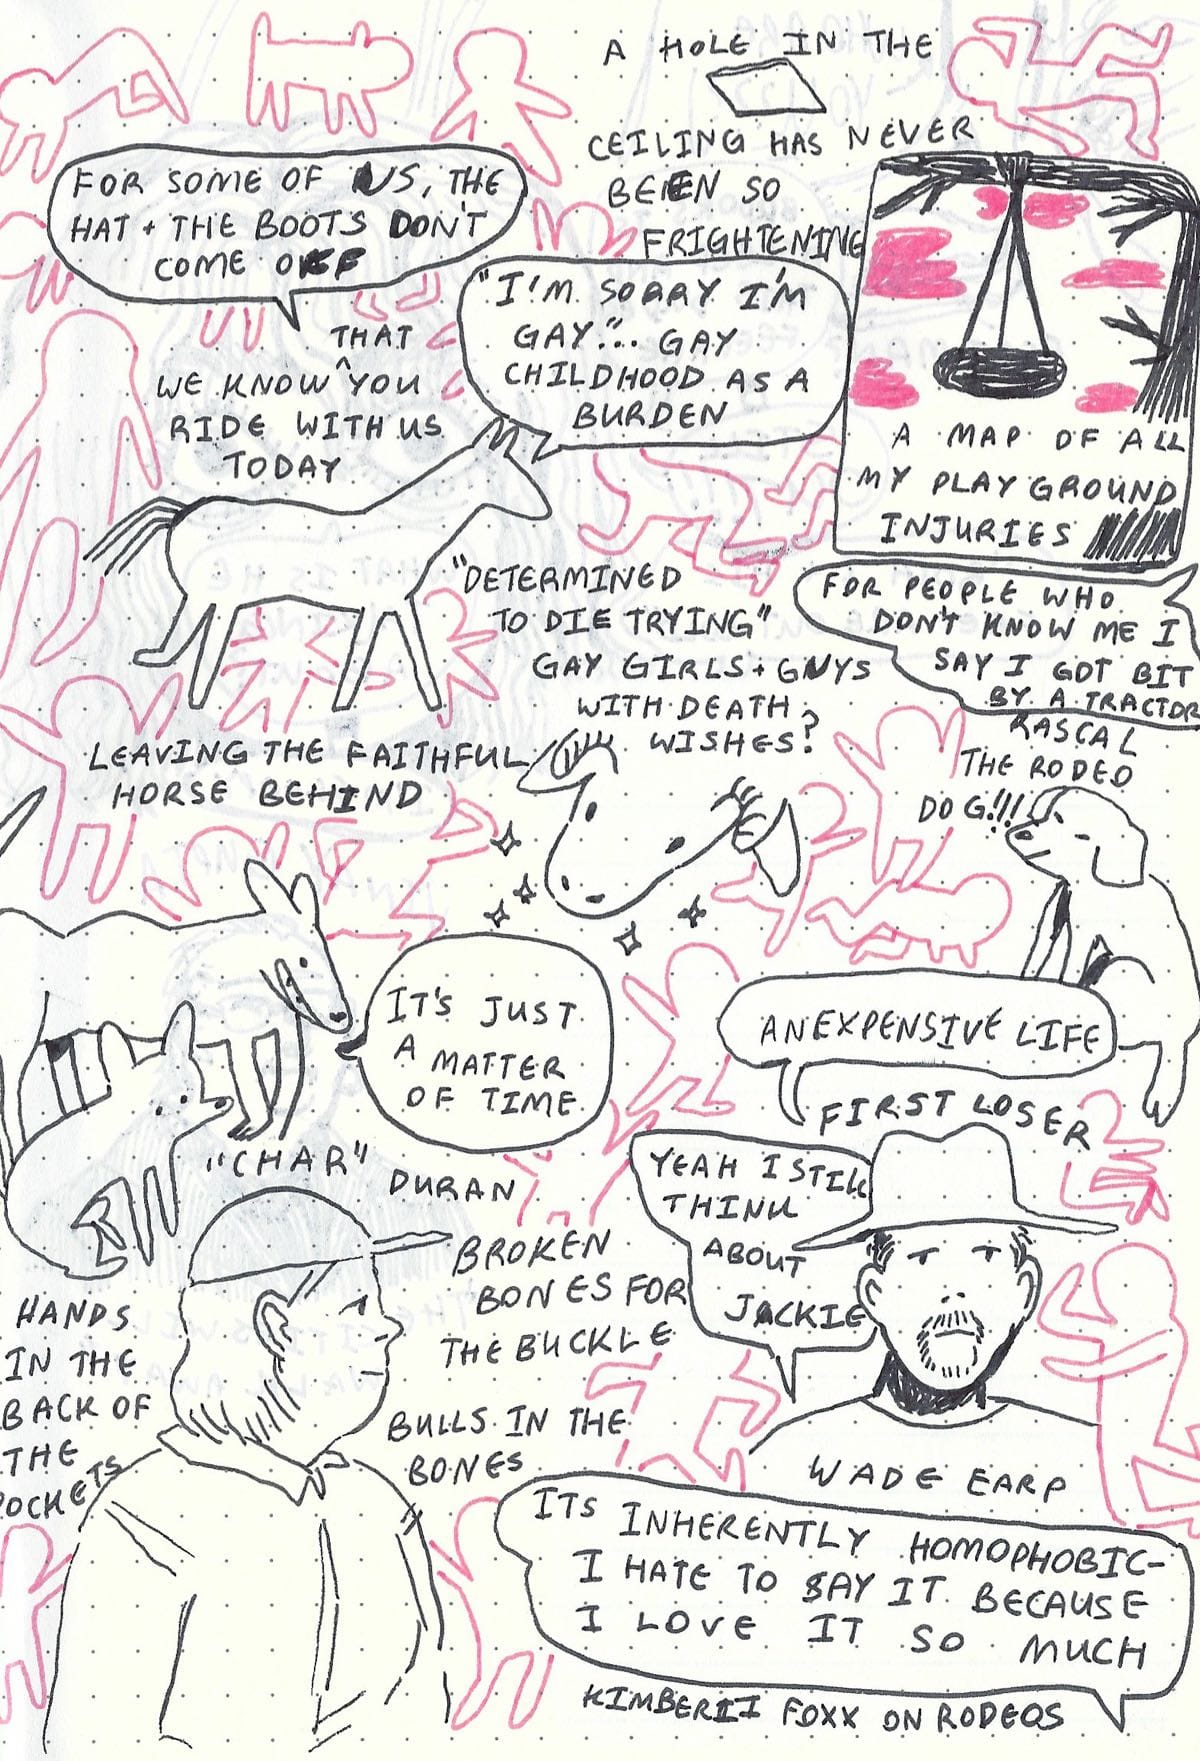 A HOLE IN THE
CEILING HAS NEVER
BEEN SO
FRIGHTENING
FOR SOME OF US, THE
HAT + THE BOOTS DON'T
COME OFF
THAT
WE KNOW ^ YOU
RIDE WITH US
TODAY
"I'M SORRY I'M
GAY."... GAY
CHILDHOOD AS A
BURDEN
A MAP OF ALL
MY PLAYGROUND
INJURIES
"DETERMINED
TO DIE TRYING"
GAY GIRLS + GUYS
WITH DEATH
WISHES?
FOR PEOPLE WHO
DON'T KNOW ME I
SAY I GOT BIT
BY A TRACTOR
RASCAL
THE RODEO
DOG!!!
LEAVING THE FAITHFUL
HORSE BEHIND
IT'S JUST
A MATTER
OF TIME
AN EXPENSIVE LIFE
FIRST LOSER
"CHAR" DURAN
YEAH I STILL
THINK
ABOUT
JACKIE
BROKEN
BONES FOR
THE BUCKLE
HANDS
IN THE
BACK OF
THE
POCKETS
BULLS IN THE
BONES
WADE EARP
ITS INHERENTLY HOMOPHOBIC-
I HATE TO SAY IT BECAUSE
I LOVE IT SO MUCH
KIMBERII FOXX ON RODEOS